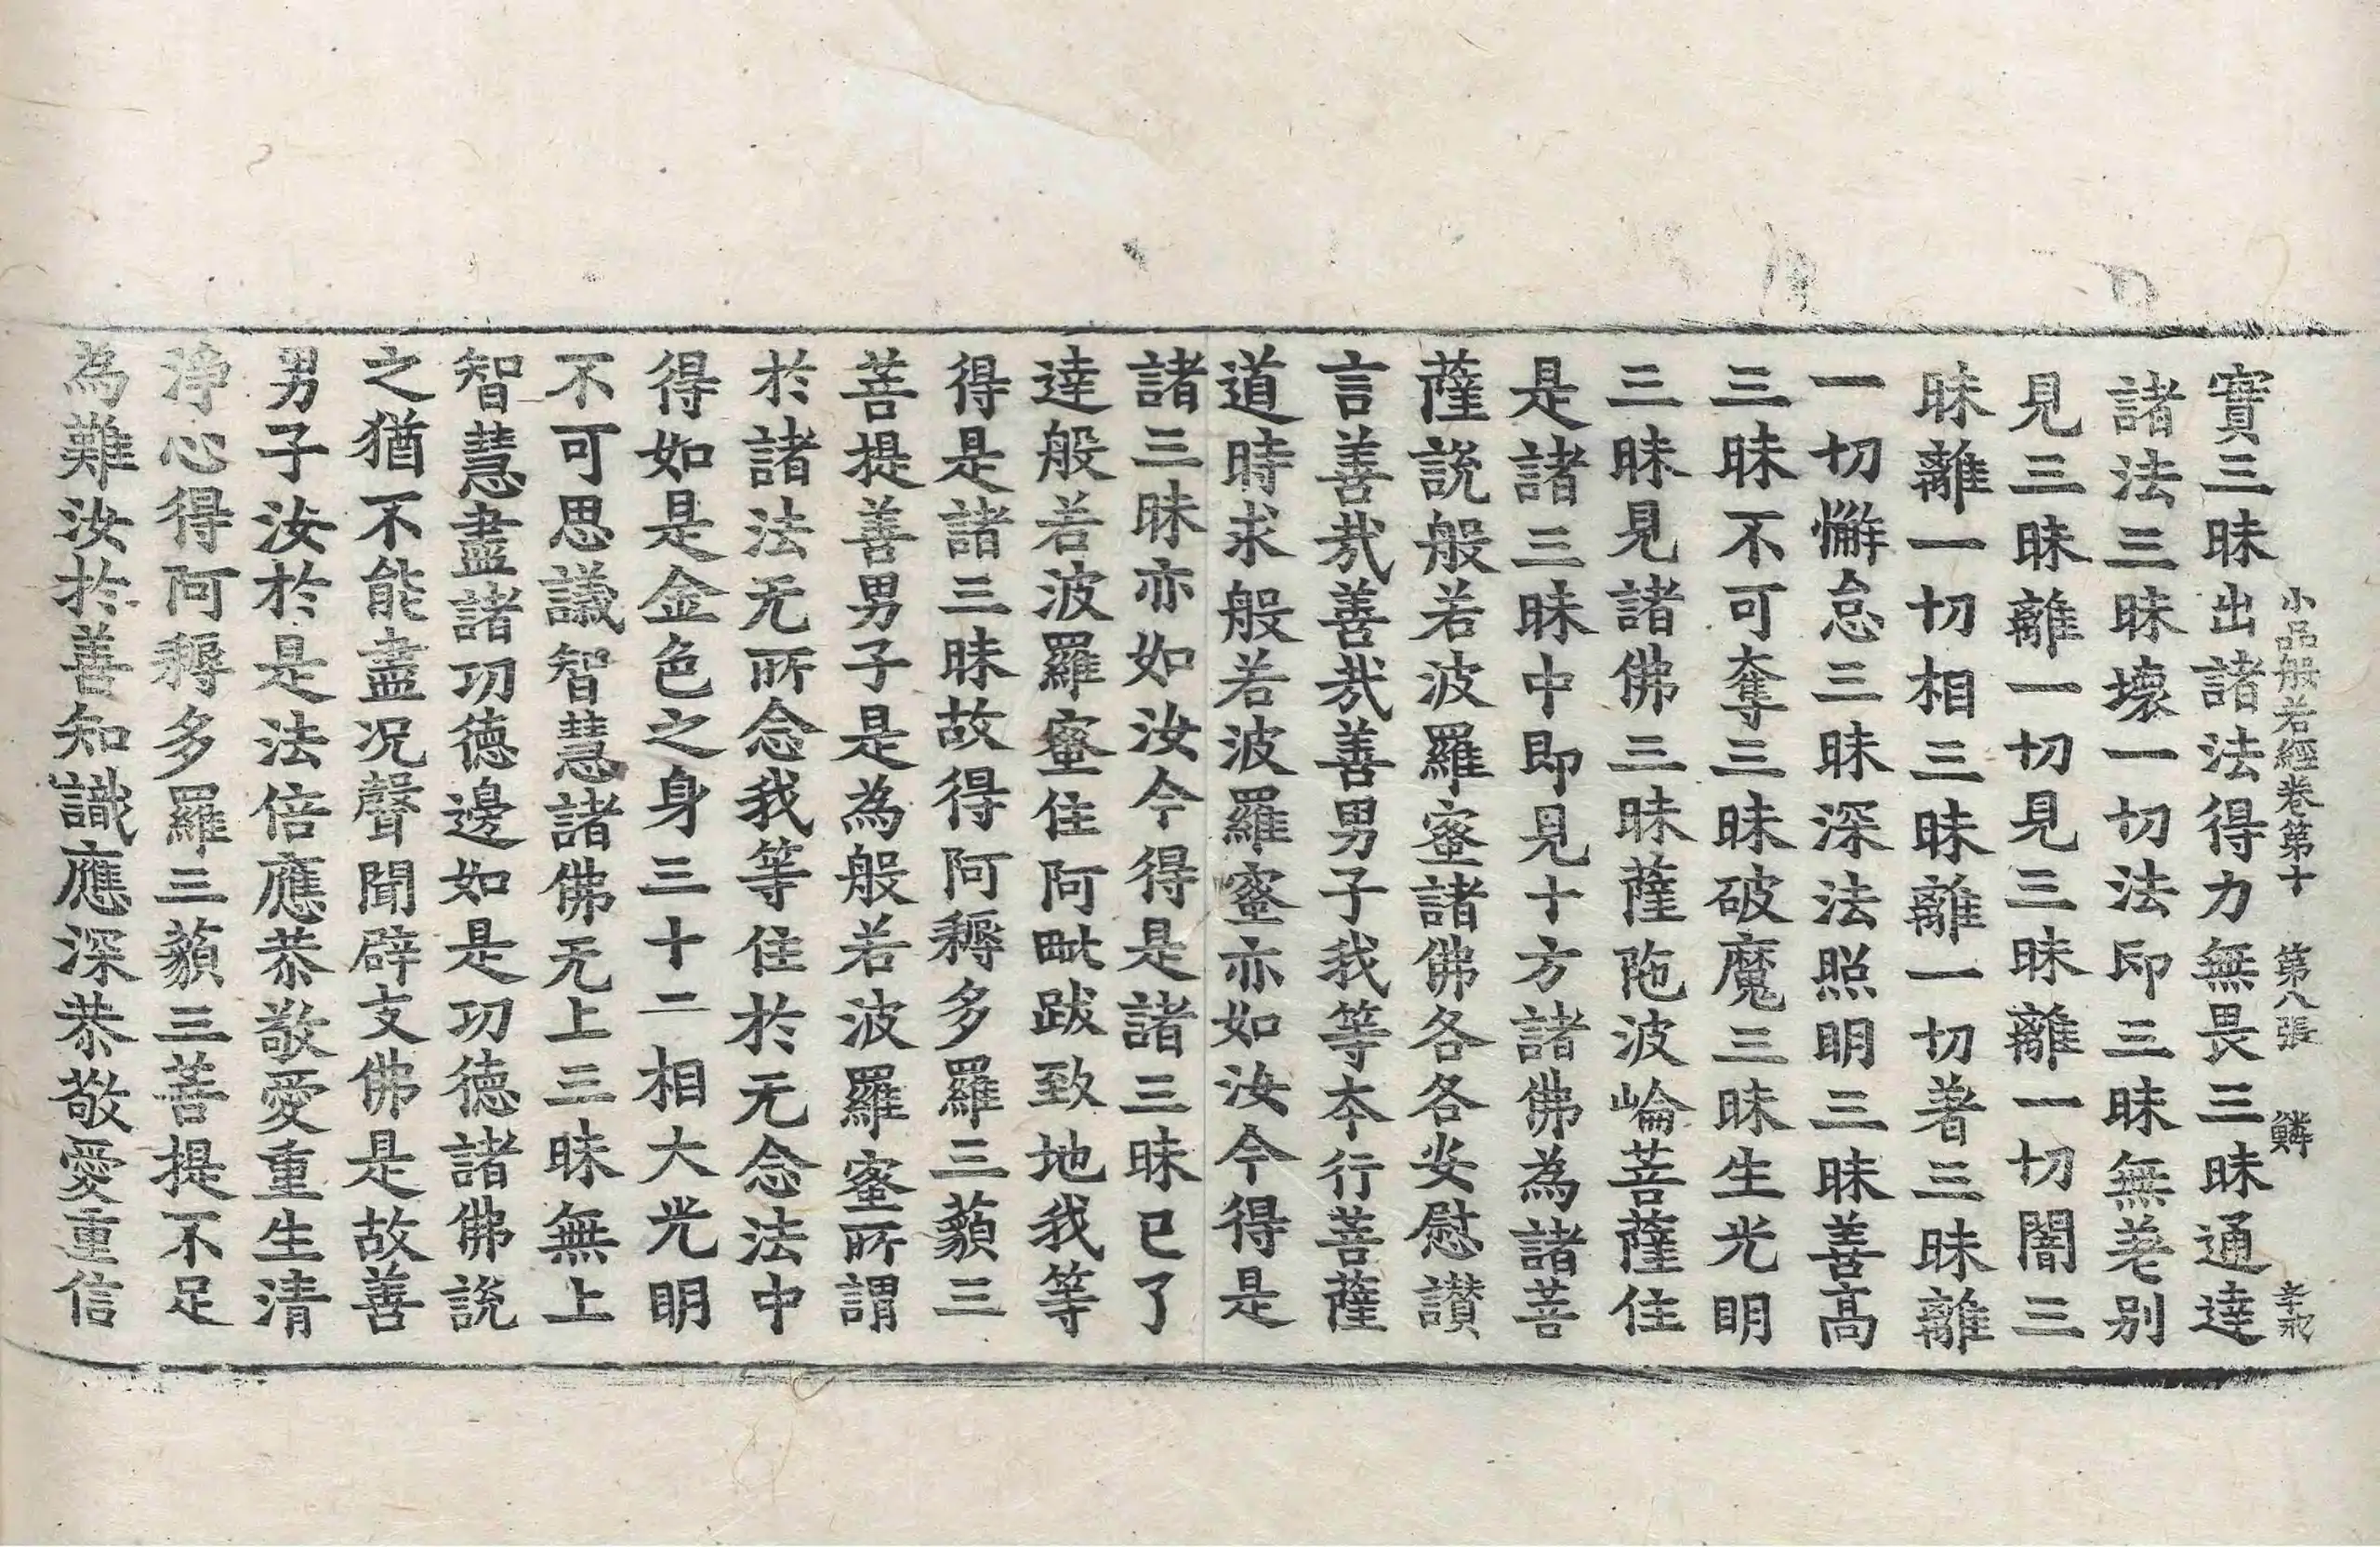 小品般若經卷第十 第八張 鱗
實三昧出諸法得力無畏三昧通達
諸法三昧壞一切法印三昧無差別
見三昧離一切見三昧離一切闇三
昧離一切相三昧離一切著三昧離
一切懈怠三昧深法照明三昧善高
三昧不可奪三昧破魔三昧生光明
三昧見諸佛三昧薩陁波崙菩薩住
是諸三昧中即見十方諸佛為諸菩
薩說般若波羅蜜諸佛各各安慰讃
言善㢤善㢤善男子我等夲行菩薩
道時求般若波羅蜜亦如汝今得是
諸三昧亦如汝今得是諸三昧已了
達般若波羅蜜住阿毗跋致地我等
得是諸三昧故得阿耨多羅三藐三
菩提善男子是為般若波羅蜜所謂
於諸法无所念我等住於无念法中
得如是金色之身三十二相大光明
不可思議智慧諸佛无上三昧無上
智慧盡諸功德邊如是功德諸佛說
之猶不能盡况聲聞辟支佛是故善
男子汝於是法倍應恭敬愛重生清
淨心得阿耨多羅三藐三菩提不足
為難汝於善知識應深恭敬愛重信